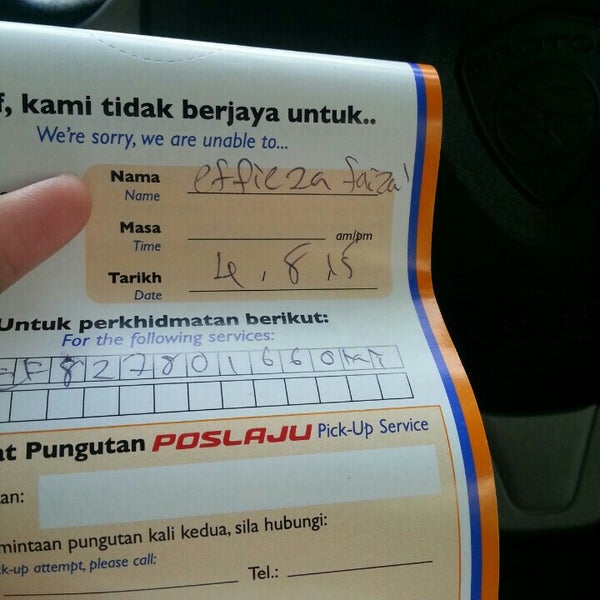 f, kami tidak berjaya untuk..
We're sorry, we are unable to...
Nama effieza faizal
Name
Masa am/pm
Time
Tarikh 4.8.15
Date
Untuk perkhidmatan berikut:
For the following services:
F827801660MY
at Pungutan POSLAJU Pick-Up Service
an:
mintaan pungutan kali kedua, sila hubungi:
ck-up attempt, please call:
Tel.: